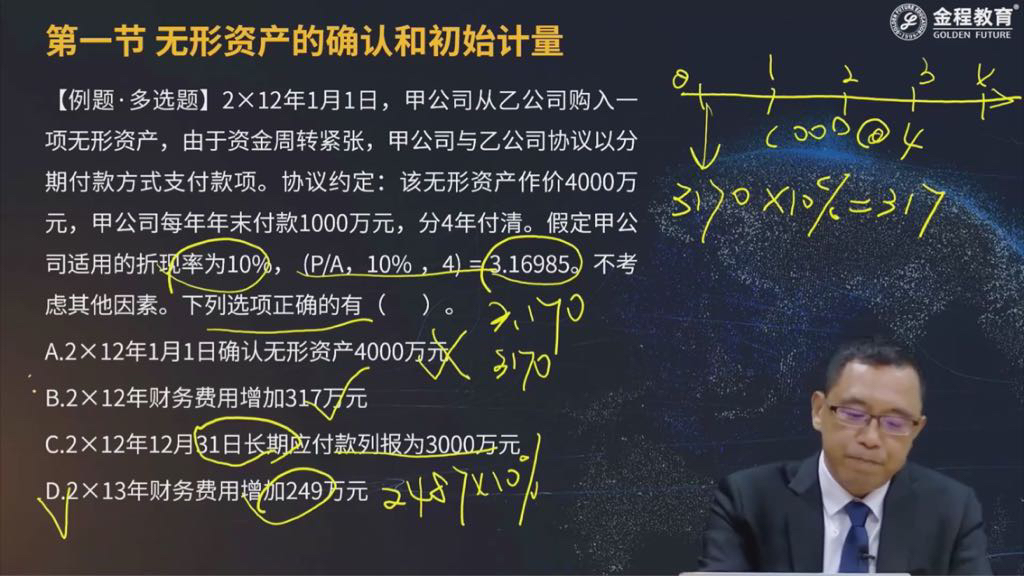 第一节 无形资产的确认和初始计量
金程教育
GOLDEN FUTURE
【例题·多选题】2×12年1月1日，甲公司从乙公司购入一
项无形资产，由于资金周转紧张，甲公司与乙公司协议以分
期付款方式支付款项。协议约定：该无形资产作价4000万
元，甲公司每年年末付款1000万元，分4年付清。假定甲公
司适用的折现率为10%，(P/A，10%，4) = 3.16985。不考
虑其他因素。下列选项正确的有（ ）。
A.2×12年1月1日确认无形资产4000万元
B.2×12年财务费用增加317万元
C.2×12年12月31日长期应付款列报为3000万元
D.2×13年财务费用增加249万元
0 1 2 3 4
1000 @ 4
3170×10%=317
3.170
3170
2487×10%